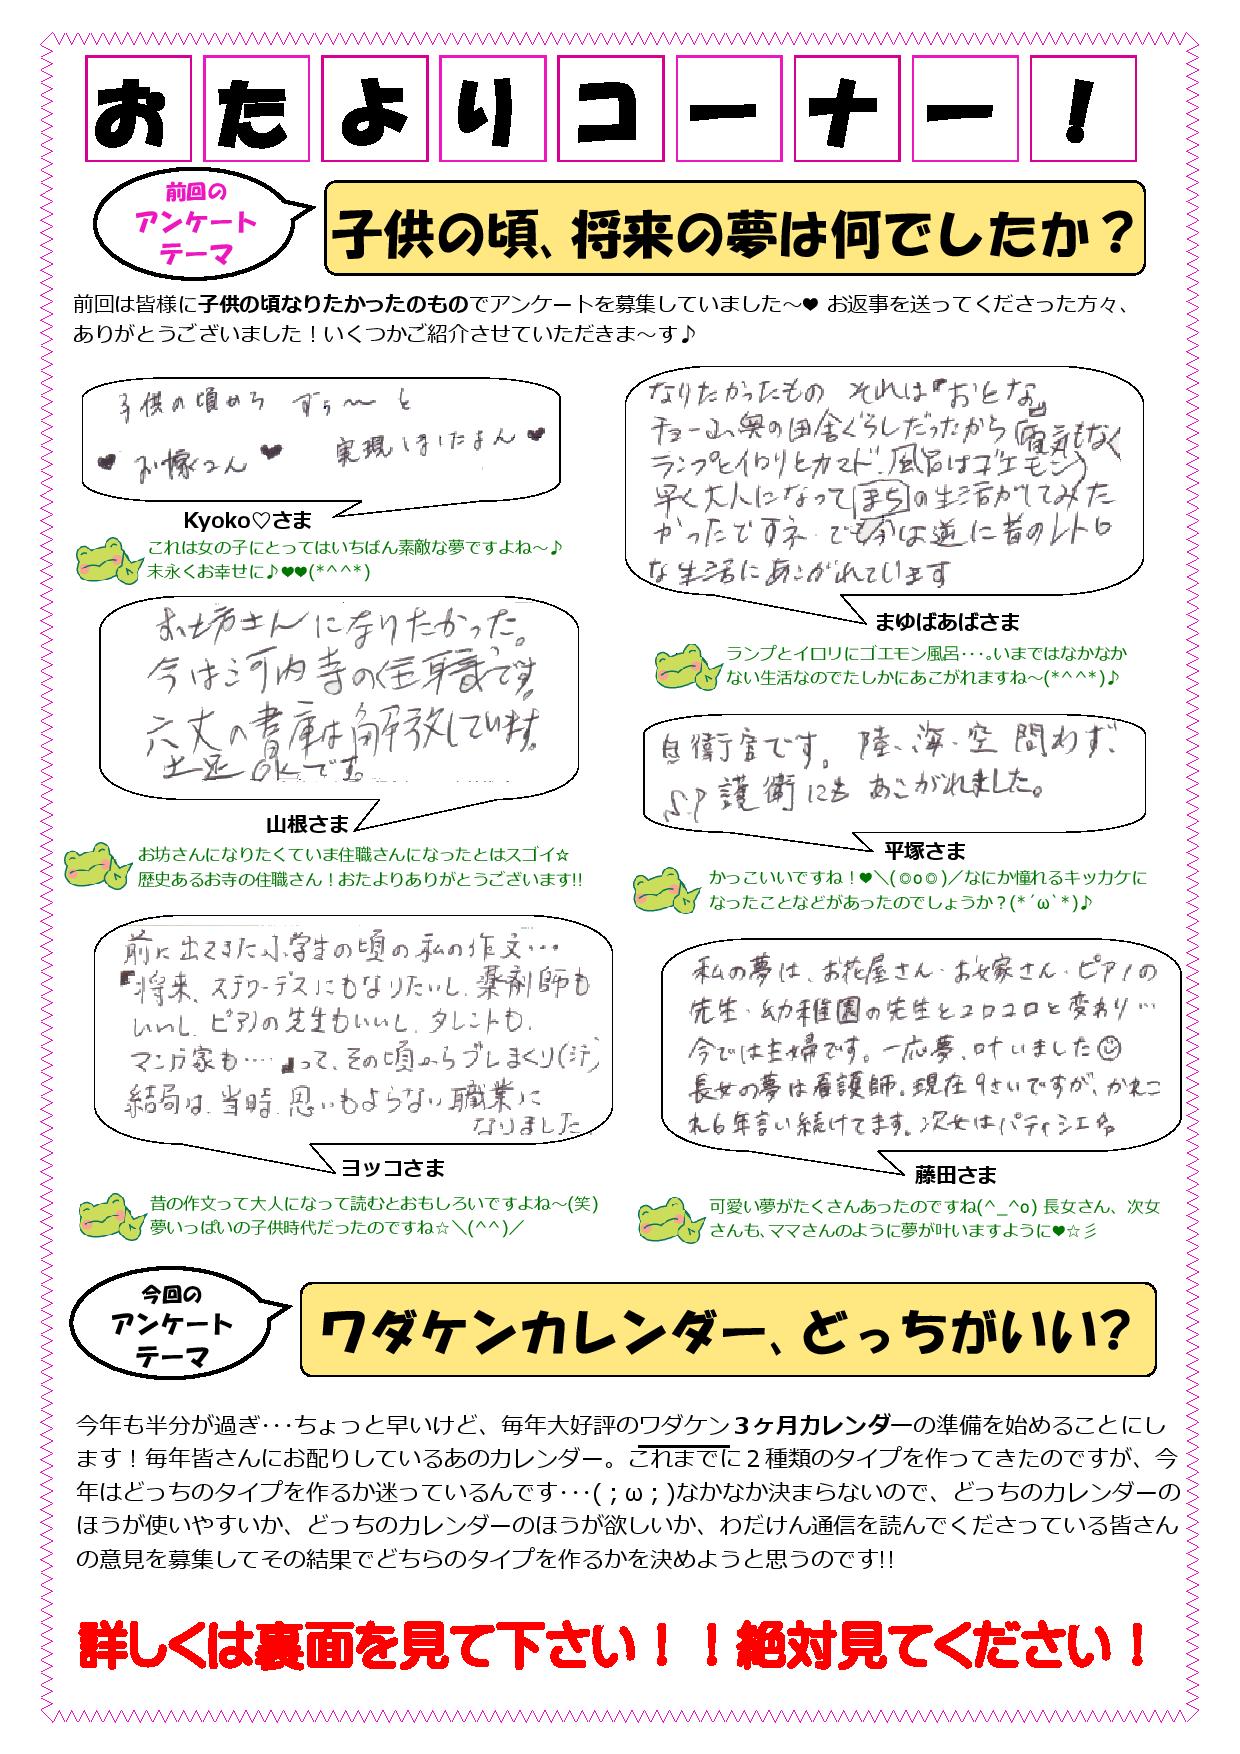 おたよりコーナー！
前回の
アンケート
テーマ
子供の頃、将来の夢は何でしたか？
前回は皆様に子供の頃なりたかったのものでアンケートを募集していました～♥ お返事を送ってくださった方々、
ありがとうございました！いくつかご紹介させていただきま～す♪
子供の頃から ずぅ～と
♥ お嫁さん ♥ 実現しましたよん♥
Kyoko♡さま
これは女の子にとってはいちばん素敵な夢ですよね～♪
末永くお幸せに♪♥♥(*^^*)
お坊さんになりたかった。
今は河内寺の住職です。
六丈の書庫は解放しています。
土足OKです。
山根さま
お坊さんになりたくていま住職さんになったとはスゴイ☆
歴史あるお寺の住職さん！おたよりありがとうございます!!
前に出てきた小学生の頃の私の作文…
『将来、スチュワーデスにもなりたいし、薬剤師も
いいし、ピアノの先生もいいし、タレントも、
マンガ家も…。』って、その頃からブレまくり(汗)
結局は、当時、思いもよらない職業に
なりました
ヨッコさま
昔の作文って大人になって読むとおもしろいですよね～(笑)
夢いっぱいの子供時代だったのですね☆＼(^^)／
なりたかったもの それは『おとな』
チョー山奥の田舎ぐらしだったから(電気もなく
ランプとイロリとカマド、風呂はゴエモン)
早く大人になってまちの生活がしてみた
かったですネ でも今は逆に昔のレトロ
な生活にあこがれています
まゆばあばさま
ランプとイロリにゴエモン風呂･･･｡いまではなかなか
ない生活なのでたしかにあこがれますね～(*^^*)♪
自衛官です。陸、海、空 問わず、
S.P 護衛にも あこがれました。
平塚さま
かっこいいですね！♥＼(◎o◎)／なにか憧れるキッカケに
なったことなどがあったのでしょうか？(*´ω`*)♪
私の夢は、お花屋さん・お嫁さん・ピアノの
先生・幼稚園の先生とコロコロと変わり…
今では主婦です。一応夢、叶いました☺
長女の夢は看護師。現在9さいですが、かれこ
れ6年言い続けてます。次女はパティシエ
藤田さま
可愛い夢がたくさんあったのですね(^_^o) 長女さん、次女
さんも､ママさんのように夢が叶いますように♥☆彡
今回の
アンケート
テーマ
ワダケンカレンダー、どっちがいい?
今年も半分が過ぎ･･･ちょっと早いけど、毎年大好評のワダケン３ヶ月カレンダーの準備を始めることにし
ます！毎年皆さんにお配りしているあのカレンダー。これまでに２種類のタイプを作ってきたのですが、今
年はどっちのタイプを作るか迷っているんです･･･(；ω；)なかなか決まらないので、どっちのカレンダーの
ほうが使いやすいか、どっちのカレンダーのほうが欲しいか、わだけん通信を読んでくださっている皆さん
の意見を募集してその結果でどちらのタイプを作るかを決めようと思うのです!!
詳しくは裏面を見て下さい！！絶対見てください！